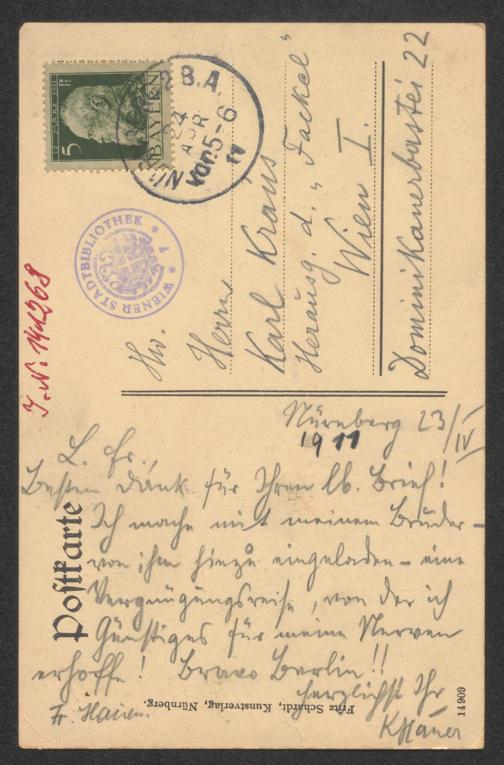 5
BAYERN
2 B.A.
24 APR
Vor. 5-6
11
NÜRNBERG
WIENER STADTBIBLIOTHEK
J. N. 141268
Hw.
Herrn
Karl Kraus
Herausg. d. „Fackel“
Wien I.
Dominikanerbastei 22
Nürnberg 23/IV
1911
L. Fr.
Besten Dank für Ihren lb. Brief!
Ich mache mit meinem Bruder -
von ihm hinzu eingeladen - eine
Vergnügungsreise, von der ich
Günstiges für meine Nerven
erhoffe! Bravo Berlin!!
herzlichst Ihr
KHauer
Postkarte
Fritz Schardt, Kunstverlag, Nürnberg.
14909